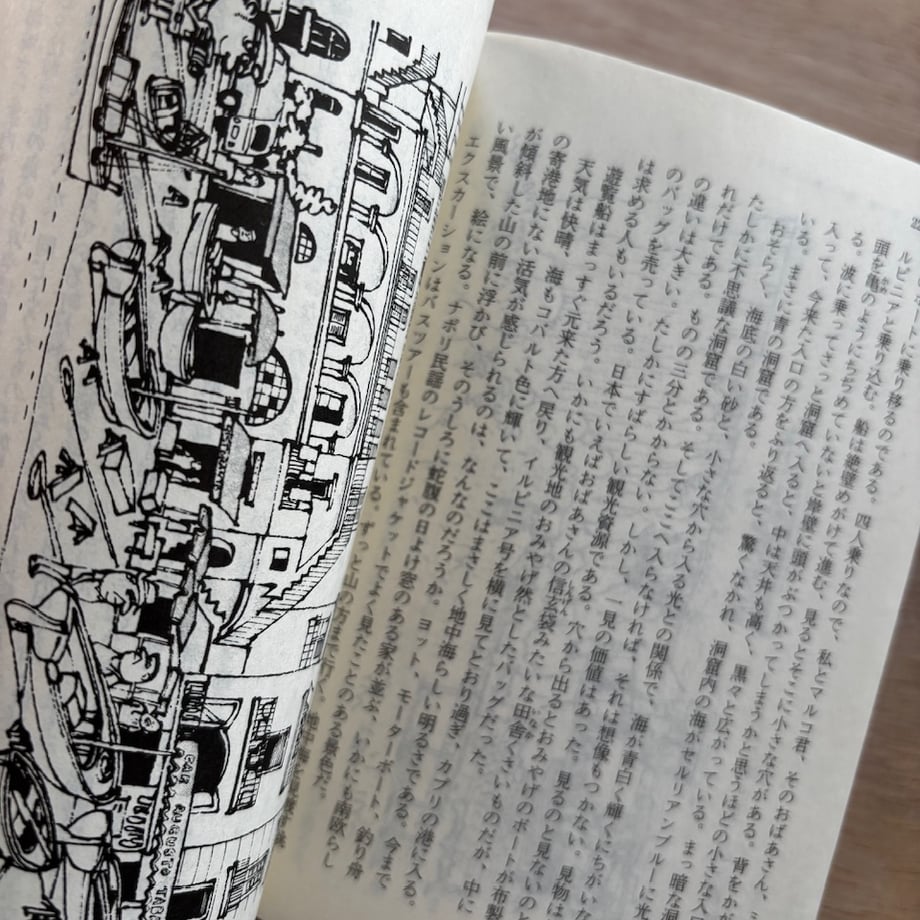 に乗り移るのである。四人乗りなので、私とマルコ君、そのおばあさん、
ルビニアと乗り込む。船は絶壁めがけて進む、見るとそこに小さな穴がある。背をか
頭を亀のようにちぢめていないと岸壁に頭がぶつかってしまうかと思うほどの小さな入口
る。波に乗ってさっと洞窟へ入ると、中は天井も高く、黒々と広がっている。まっ暗な洞
入って、今来た入口の方をふり返ると、驚くなかれ、洞窟内の海がセルリアンブルーに光
いる。まさに青の洞窟である。
おそらく、海底の白い砂と、小さな穴から入る光との関係で、海が青白く輝くにちがいな
たしかに不思議な洞窟である。そしてここへ入らなければ、それは想像もつかない。見物は
れただけである。ものの三分とかからない。しかし、一見の価値はあった。見るのと見ないのと
の違いは大きい。たしかにすばらしい観光資源である。穴から出るとおみやげのボートが布製
のバッグを売っている。日本でいえばおばあさんの信玄袋みたいな田舎くさいものだが、中に
は求める人もいるだろう。いかにも観光地のおみやげ然としたバッグだった。
遊覧船はまっすぐ元来た方へ戻り、イルビニア号を横に見てとおり過ぎ、カプリの港に入る。
天気は快晴、海もコバルト色に輝いて、ここはまさしく地中海らしい明るさである。今まで
の寄港地にない活気が感じられるのは、なんなのだろうか。ヨット、モーターボート、釣り舟
が傾斜した山の前に浮かび、そのうしろに蛇腹の日よけ窓のある家が並ぶ、いかにも南欧らし
い風景で、絵になる。ナポリ民謡のレコードジャケットでよく見たことのある景色だ。
エクスカーションはバスツアーも含まれている。ずっと山の方まで行く。